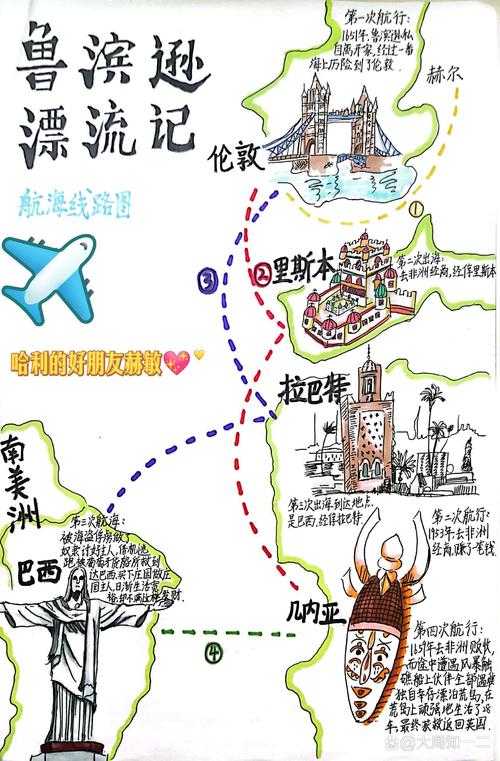 鲁滨逊
漂流记
航海线路图
哈利的好朋友赫敏
第一次航行:
1651年,鲁滨逊私
自离开家,经过一番
海上历险到了伦敦.
赫尔
伦敦
①
③
②
里斯本
第二次出海:
去非洲经商,经停里斯本
拉巴特
第三次出海到达地点
是巴西,经停拉巴特
第二次航行:
1653年去非洲
经商,赚了笔钱
南美洲
第三次航海:
被海盗俘房做了
奴隶
达巴西,买下庄园做庄
园主人,日渐生活富
裕却不满
巴西
几内亚
④
第四次航行:
1659年去非洲贩奴,
而途中遭遇风暴触
礁船上伙伴全部遇难
独自幸存漂泊荒岛,在
荒岛上顽强地生活了28
年.最终获救返回英国.
@大周知一二